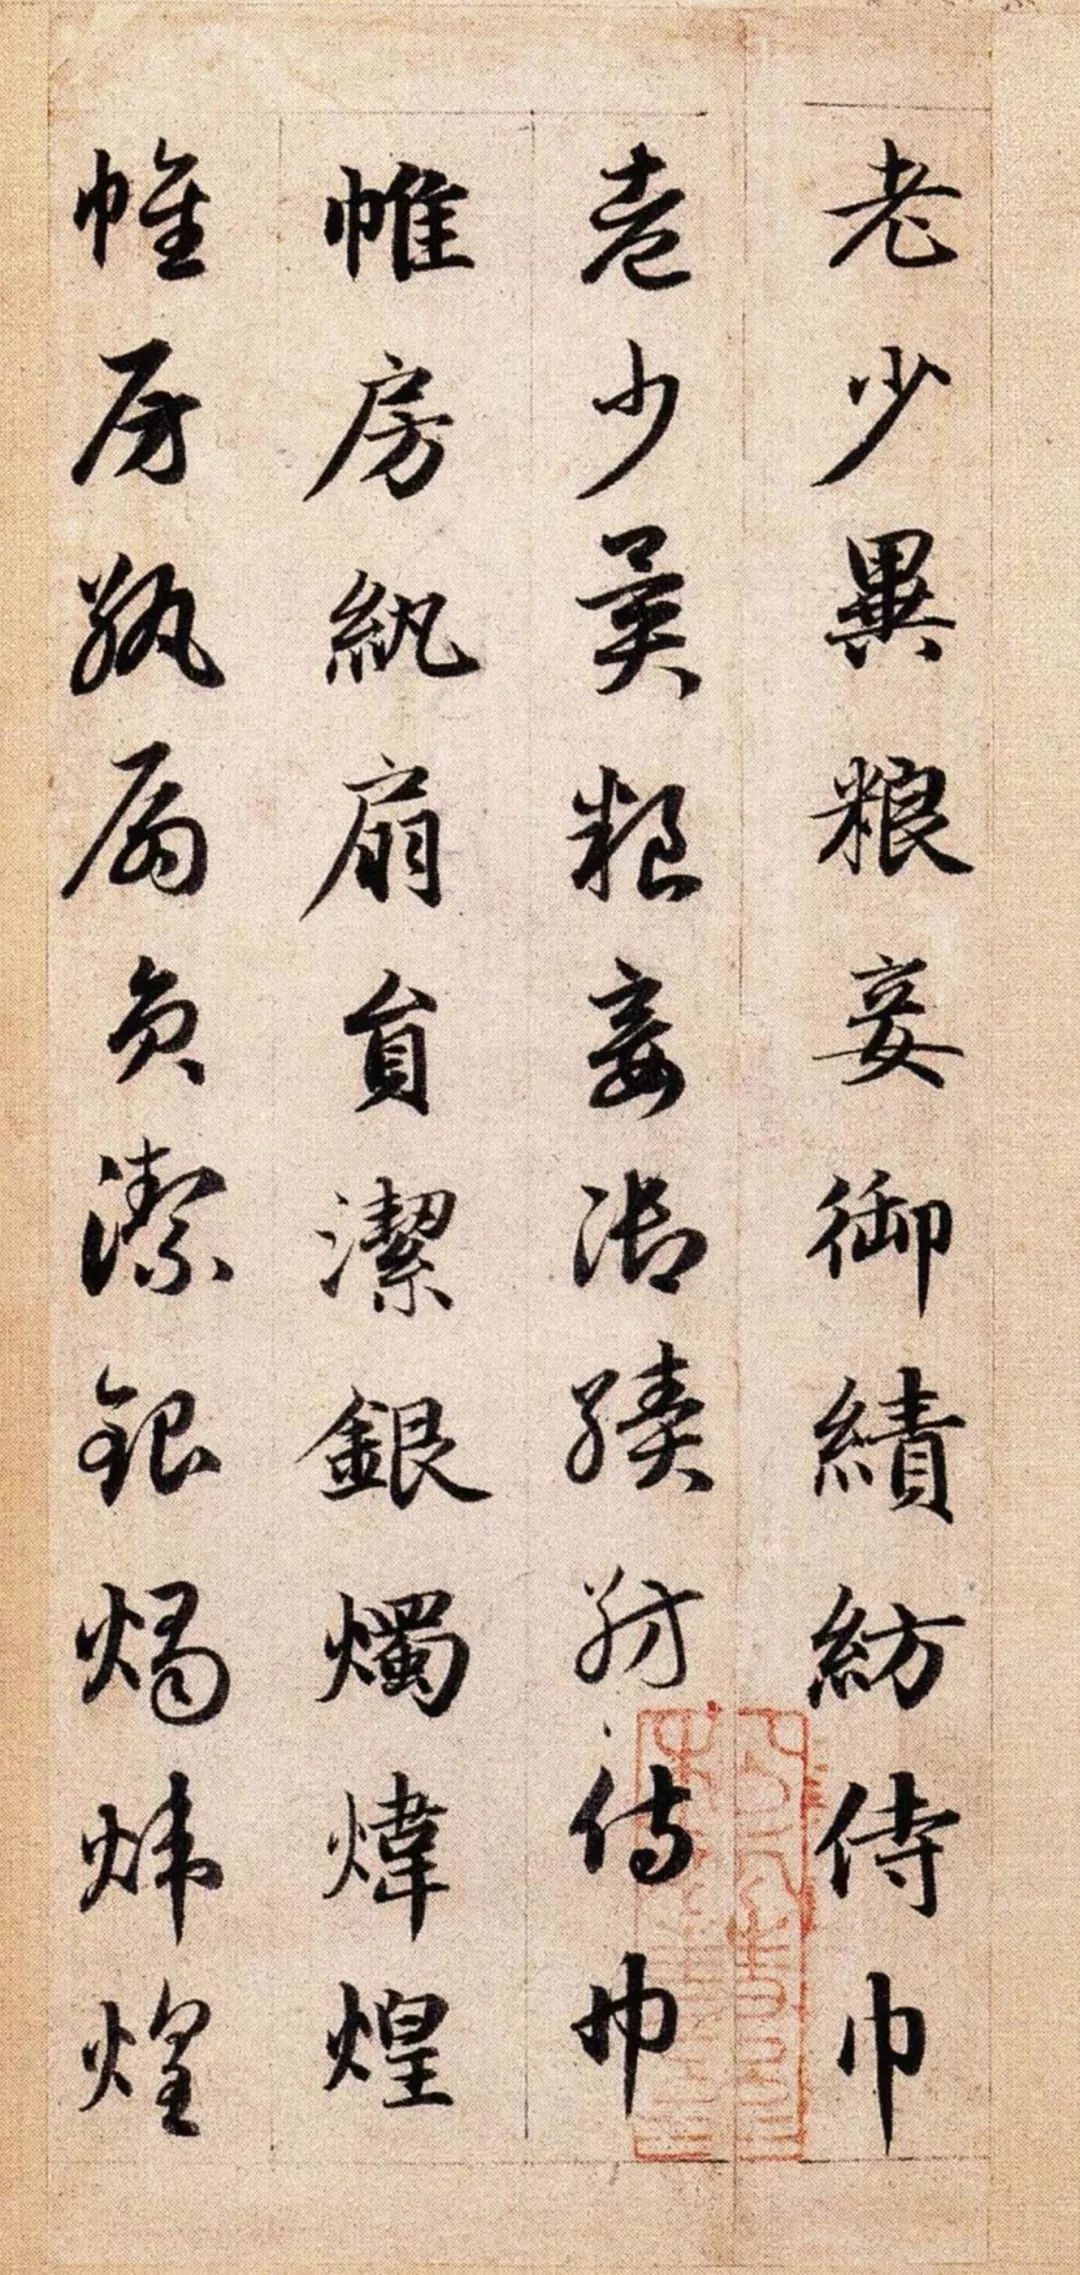 老少異粮妾御績紡侍巾
老少異粮妾御績紡侍巾
帷房紈扇貟潔銀燭煒煌
帷房紈扇貟潔銀燭煒煌